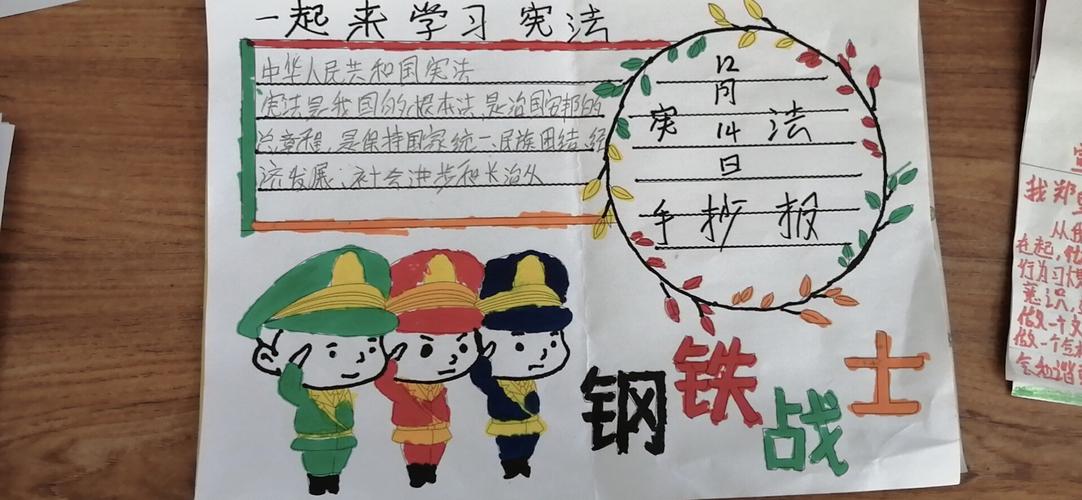 一起来学习宪法
中华人民共和国宪法
宪法是我国的根本法,是治国安邦的
总章程,是保持国家统一、民族团结、经
济发展、社会进步和长治久
12
月
宪 14 法
日
手抄报
钢铁战士
我郑
从
在起,
行为习
意识,
做一个
做一个